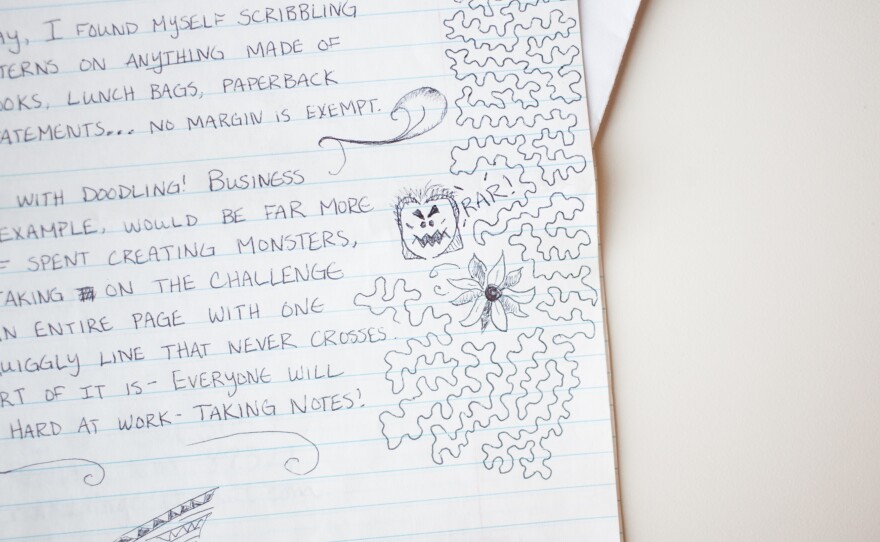 AY, I FOUND MYSELF SCRIBBLING
TERNS ON ANYTHING MADE OF
OOKS, LUNCH BAGS, PAPERBACK
ATEMENTS... NO MARGIN IS EXEMPT.
WITH DOODLING! BUSINESS
EXAMPLE, WOULD BE FAR MORE
F SPENT CREATING MONSTERS,
RAR!
TAKING ON THE CHALLENGE
N ENTIRE PAGE WITH ONE
QUIGGLY LINE THAT NEVER CROSSES
RT OF IT IS - EVERYONE WILL
HARD AT WORK - TAKING NOTES!